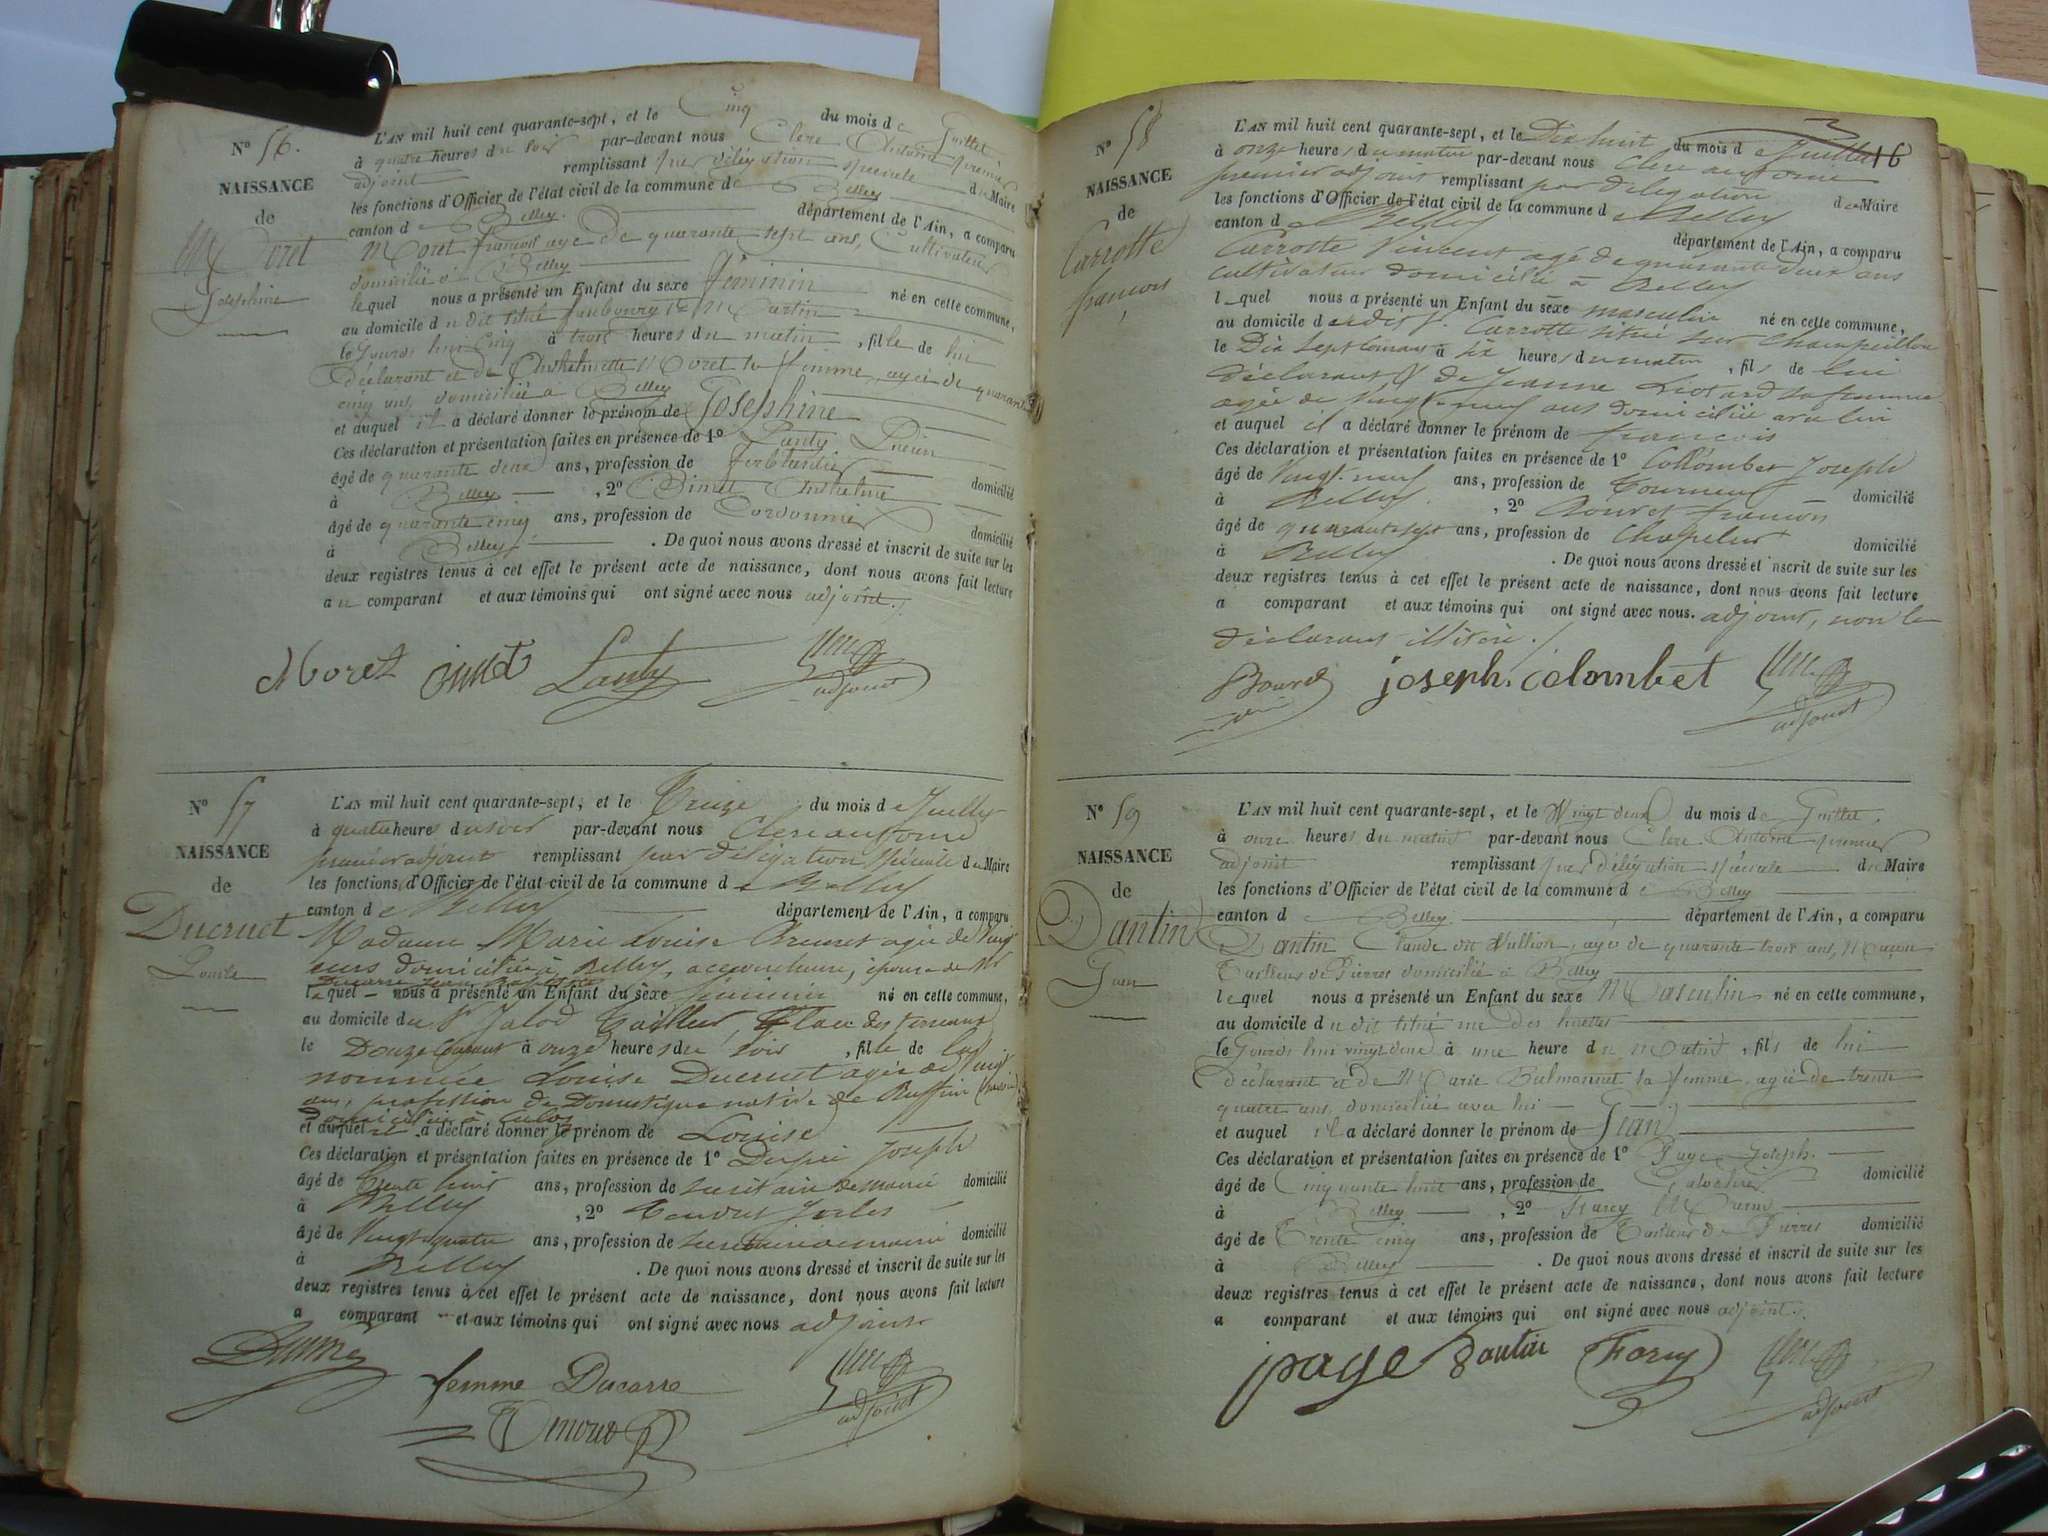 N° 56.
NAISSANCE
de
Moret
Josephine
L'AN mil huit cent quarante-sept, et le Cinq du mois de Juillet
à quatre heures du soir par-devant nous Clerc Antoine premier
adjoint remplissant par délégation spéciale du Maire
les fonctions d'Officier de l'état civil de la commune de Belley
canton de Belley. département de l'Ain, a comparu
Moret françois age de quarante sept ans, Cultivateur
domicilié à Belley
lequel nous a présenté un Enfant du sexe féminin né en cette commune,
au domicile du dit situé faubourg St Martin
le Jourd hui Cinq à trois heures du matin, fille de lui
déclarant et de Anthelmette Moret sa femme, agée de quarante
cinq ans, domiciliée a Belley
et auquel il a déclaré donner le prénom de Josephine
Ces déclaration et présentation faites en présence de 1° Lanty
âgé de quarante deux ans, profession de ferblantier domicilié
à Belley, 2° Dimet Anthelme
âgé de quarante cinq ans, profession de Cordonnier domicilié
à Belley. De quoi nous avons dressé et inscrit de suite sur les
deux registres tenus à cet effet le présent acte de naissance, dont nous avons fait lecture
au comparant et aux témoins qui ont signé avec nous adjoint.
Moret Lanty
adjoint
N° 57
NAISSANCE
de
Ducruet
Louise
L'AN mil huit cent quarante-sept, et le Treize du mois de Juillet
à quatre heures du soir par-devant nous Clerc antoine
premier adjoint remplissant par délégation spéciale du Maire
les fonctions d'Officier de l'état civil de la commune de Belley
canton de Belley département de l'Ain, a comparu
Madame Marie Louise agée de
domiciliée à Belley, accoucheuse, épouse de Mr
Ducarre Jean
laquel nous a présenté un Enfant du sexe féminin né en cette commune,
au domicile du Sr Jalod Tailleur, Place des Terreaux
le Douze Courant à onze heures du soir, fille de la
nommée Louise Ducruet agée de vingt
ans, profession de Domestique native de Ruffieu
domiciliée à Culoz
et auquel a déclaré donner le prénom de Louise
Ces déclaration et présentation faites en présence de 1° Joseph
âgé de trente huit ans, profession de secrétaire de mairie domicilié
à Belley, 2°
âgé de Vingt quatre ans, profession de secrétaire de mairie domicilié
à Belley. De quoi nous avons dressé et inscrit de suite sur les
deux registres tenus à cet effet le présent acte de naissance, dont nous avons fait lecture
a comparant et aux témoins qui ont signé avec nous adjoint
femme Ducarre
adjoint
16
N° 58
NAISSANCE
de
Carrotte
françois
L'AN mil huit cent quarante-sept, et le Dix huit du mois de Juillet
à onze heures du matin par-devant nous Clerc antoine
premier adjoint remplissant par délégation du Maire
les fonctions d'Officier de l'état civil de la commune de Belley
canton de Belley département de l'Ain, a comparu
Carrotte Vincent agé de quarante deux ans
cultivateur domicilié à Belley
lequel nous a présenté un Enfant du sexe masculin né en cette commune,
au domicile dudit Sr Carrotte situé sur Champeillon
le Dix sept Courant à six heures du matin, fils de lui
déclarant & de Jeanne Liotard sa femme
agée de vingt-neuf ans domiciliée avec lui
et auquel il a déclaré donner le prénom de françois
Ces déclaration et présentation faites en présence de 1° Collombet Joseph
âgé de Vingt-neuf ans, profession de Tourneur domicilié
à Belley, 2° françois
âgé de quarante sept ans, profession de Chapelier domicilié
à Belley. De quoi nous avons dressé et inscrit de suite sur les
deux registres tenus à cet effet le présent acte de naissance, dont nous avons fait lecture
a comparant et aux témoins qui ont signé avec nous. adjoint, non le
déclarant illitéré.
joseph. colombet
adjoint
N° 59
NAISSANCE
de
Dantin
Jean
L'AN mil huit cent quarante-sept, et le Vingt deux du mois de Juillet.
à onze heures du matin par-devant nous Clerc Antoine premier
adjoint remplissant par délégation spéciale du Maire
les fonctions d'Officier de l'état civil de la commune de Belley
canton de Belley. département de l'Ain, a comparu
Dantin Claude dit Vullion, age de quarante trois ans, Maçon
Tailleur de Pierres domicilié à Belley
lequel nous a présenté un Enfant du sexe Masculin né en cette commune,
au domicile du dit situé rue des
le Jourd hui vingt deux à une heure du Matin, fils de lui
déclarant et de Marie Bulmonnet sa femme, agée de trente
quatre ans, domiciliée avec lui
et auquel il a déclaré donner le prénom de Jean
Ces déclaration et présentation faites en présence de 1° Page Joseph.
âgé de Cinquante huit ans, profession de domicilié
à Belley, 2°
âgé de Trente cinq ans, profession de Tailleur de Pierres domicilié
à Belley. De quoi nous avons dressé et inscrit de suite sur les
deux registres tenus à cet effet le présent acte de naissance, dont nous avons fait lecture
a comparant et aux témoins qui ont signé avec nous adjoint.
page Dantin
adjoint